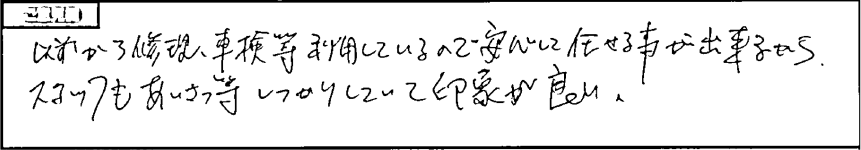 以前から修理、車検等利用しているので安心して任せる事が出来るから。
スタッフもあいさつ等しっかりしていて印象が良い。